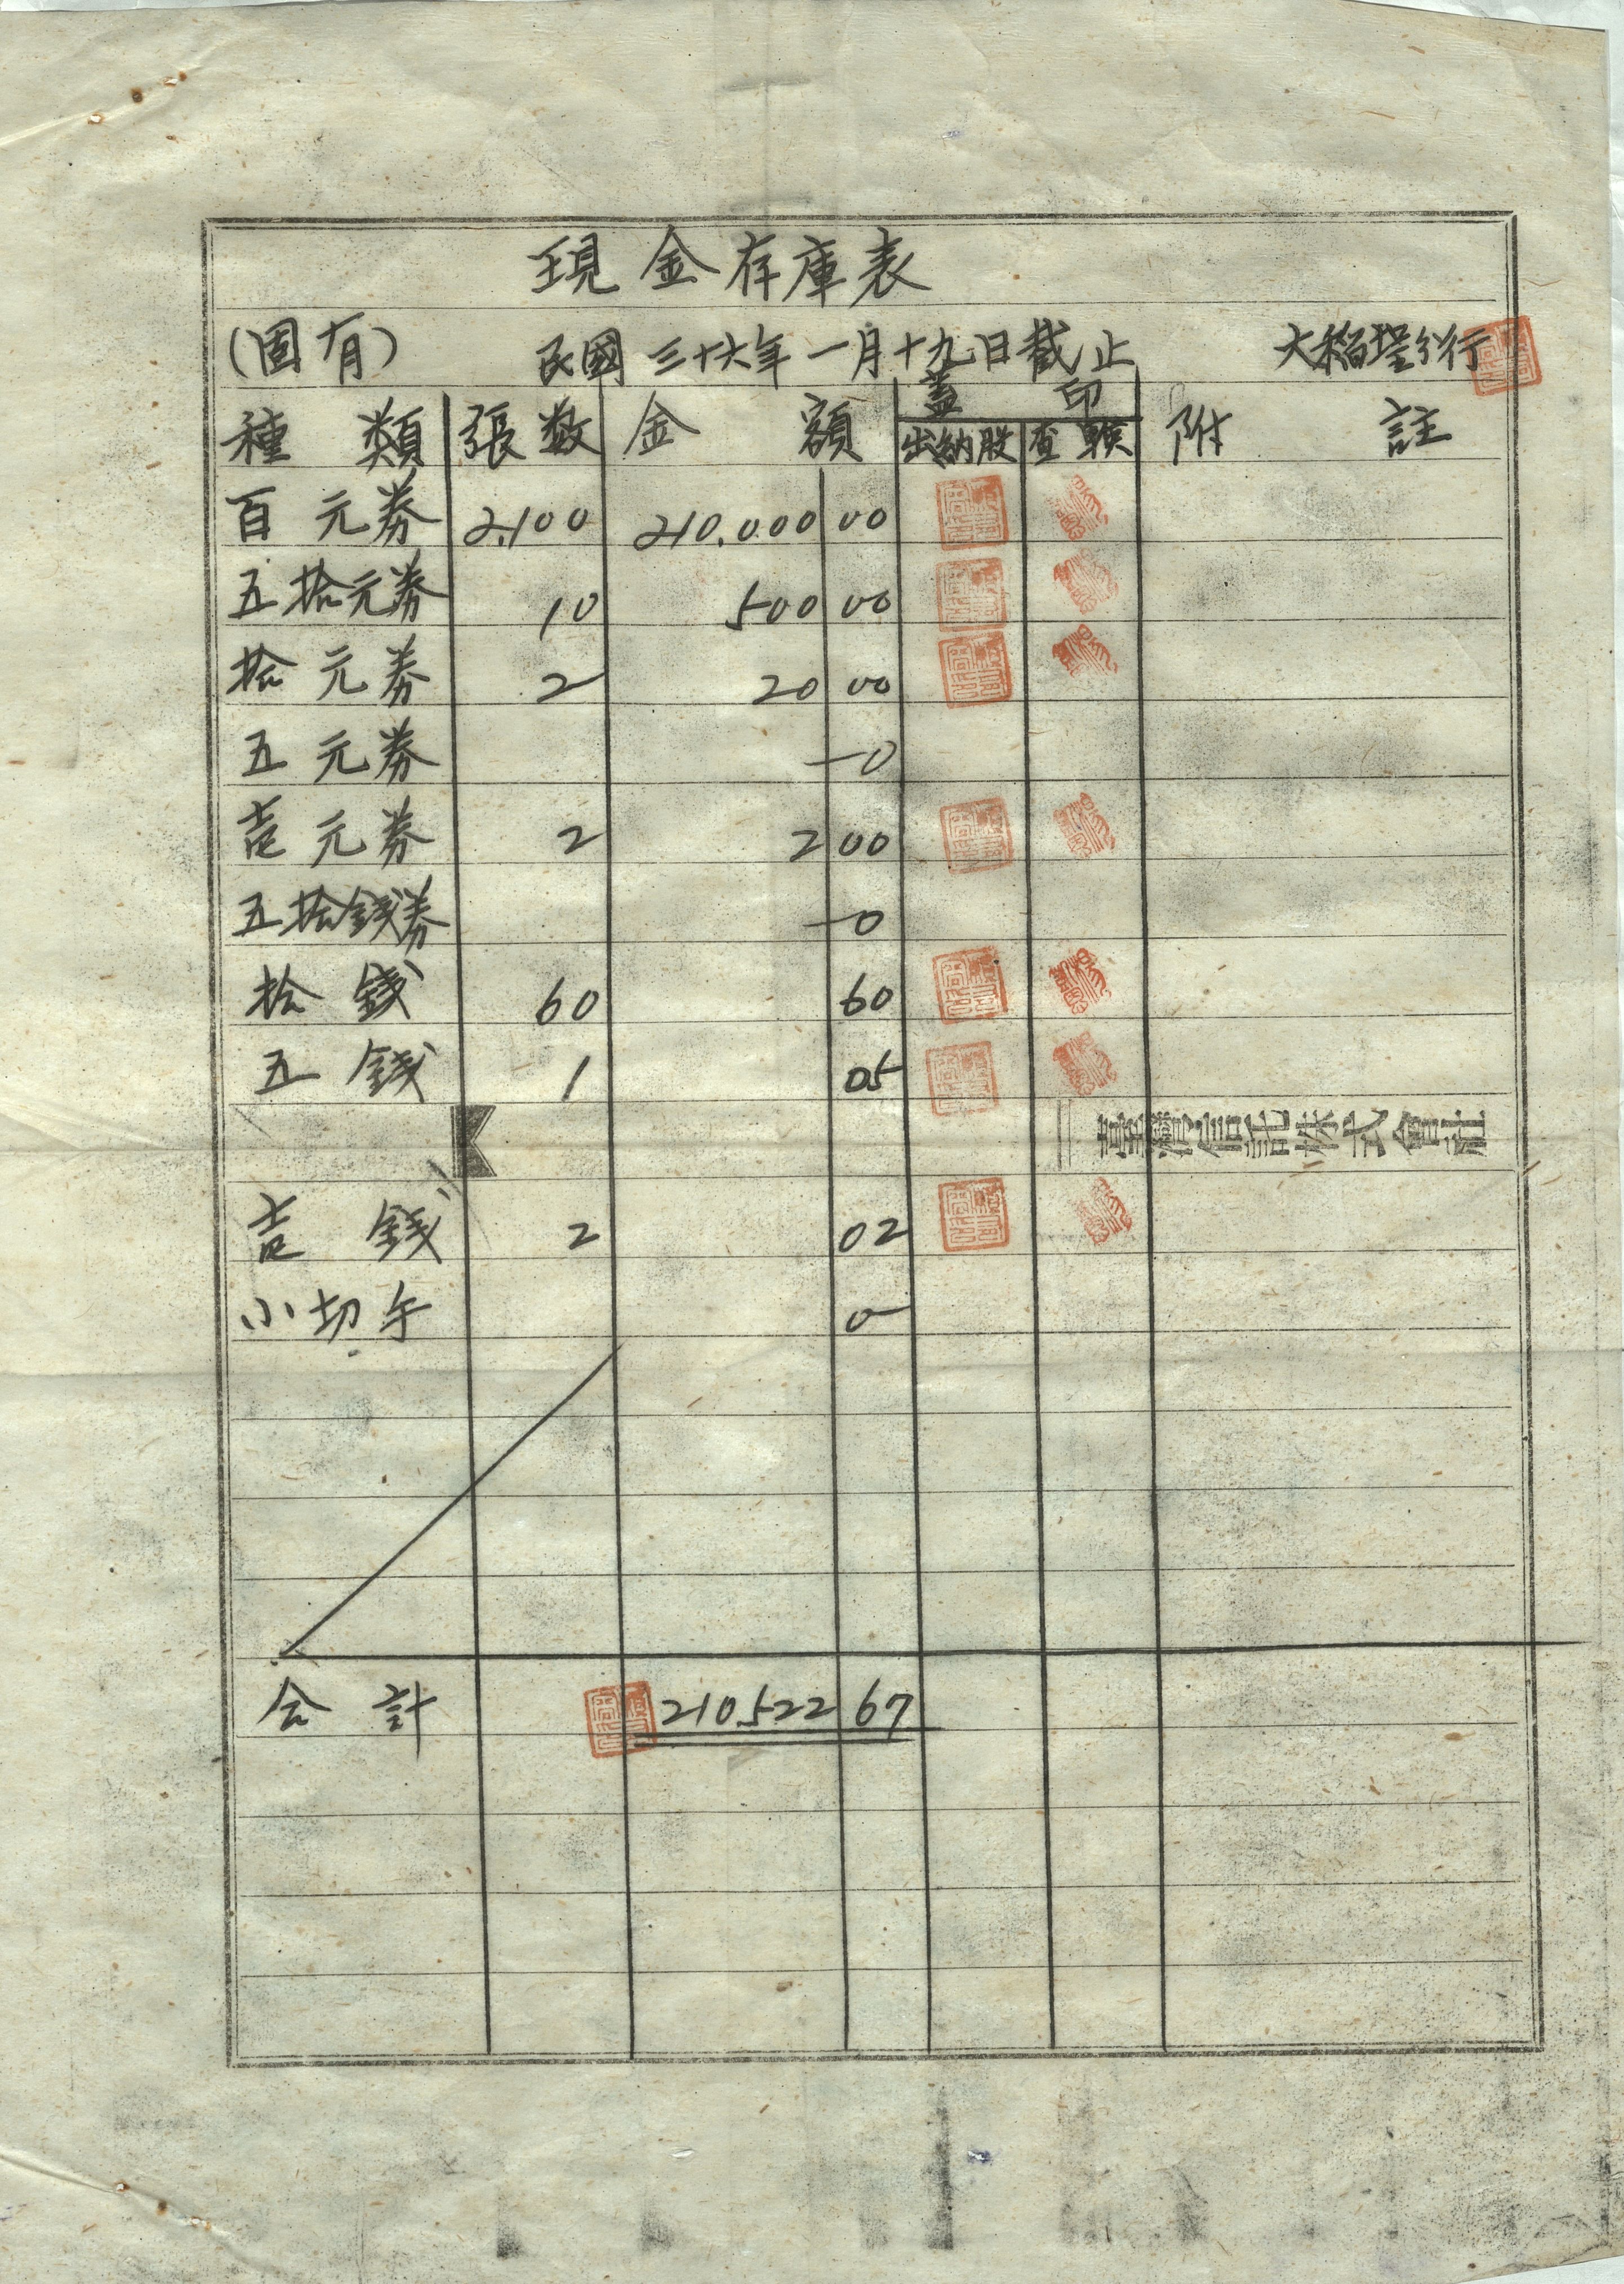 現金存庫表
(固有) 民國三十六年一月十九日截止 大稻埕分行
蓋印
種類 張数 金額 出納股 查験 附註
百元券 2,100 210.000 00
五拾元券 10 500 00
拾元券 2 20 00
五元券 —0
壱元券 2 2 00
五拾銭券 —0
拾銭 60 60
五銭 1 05
臺灣信託株式會社
壱銭 2 02
小切手 0—
合計 210.522 67